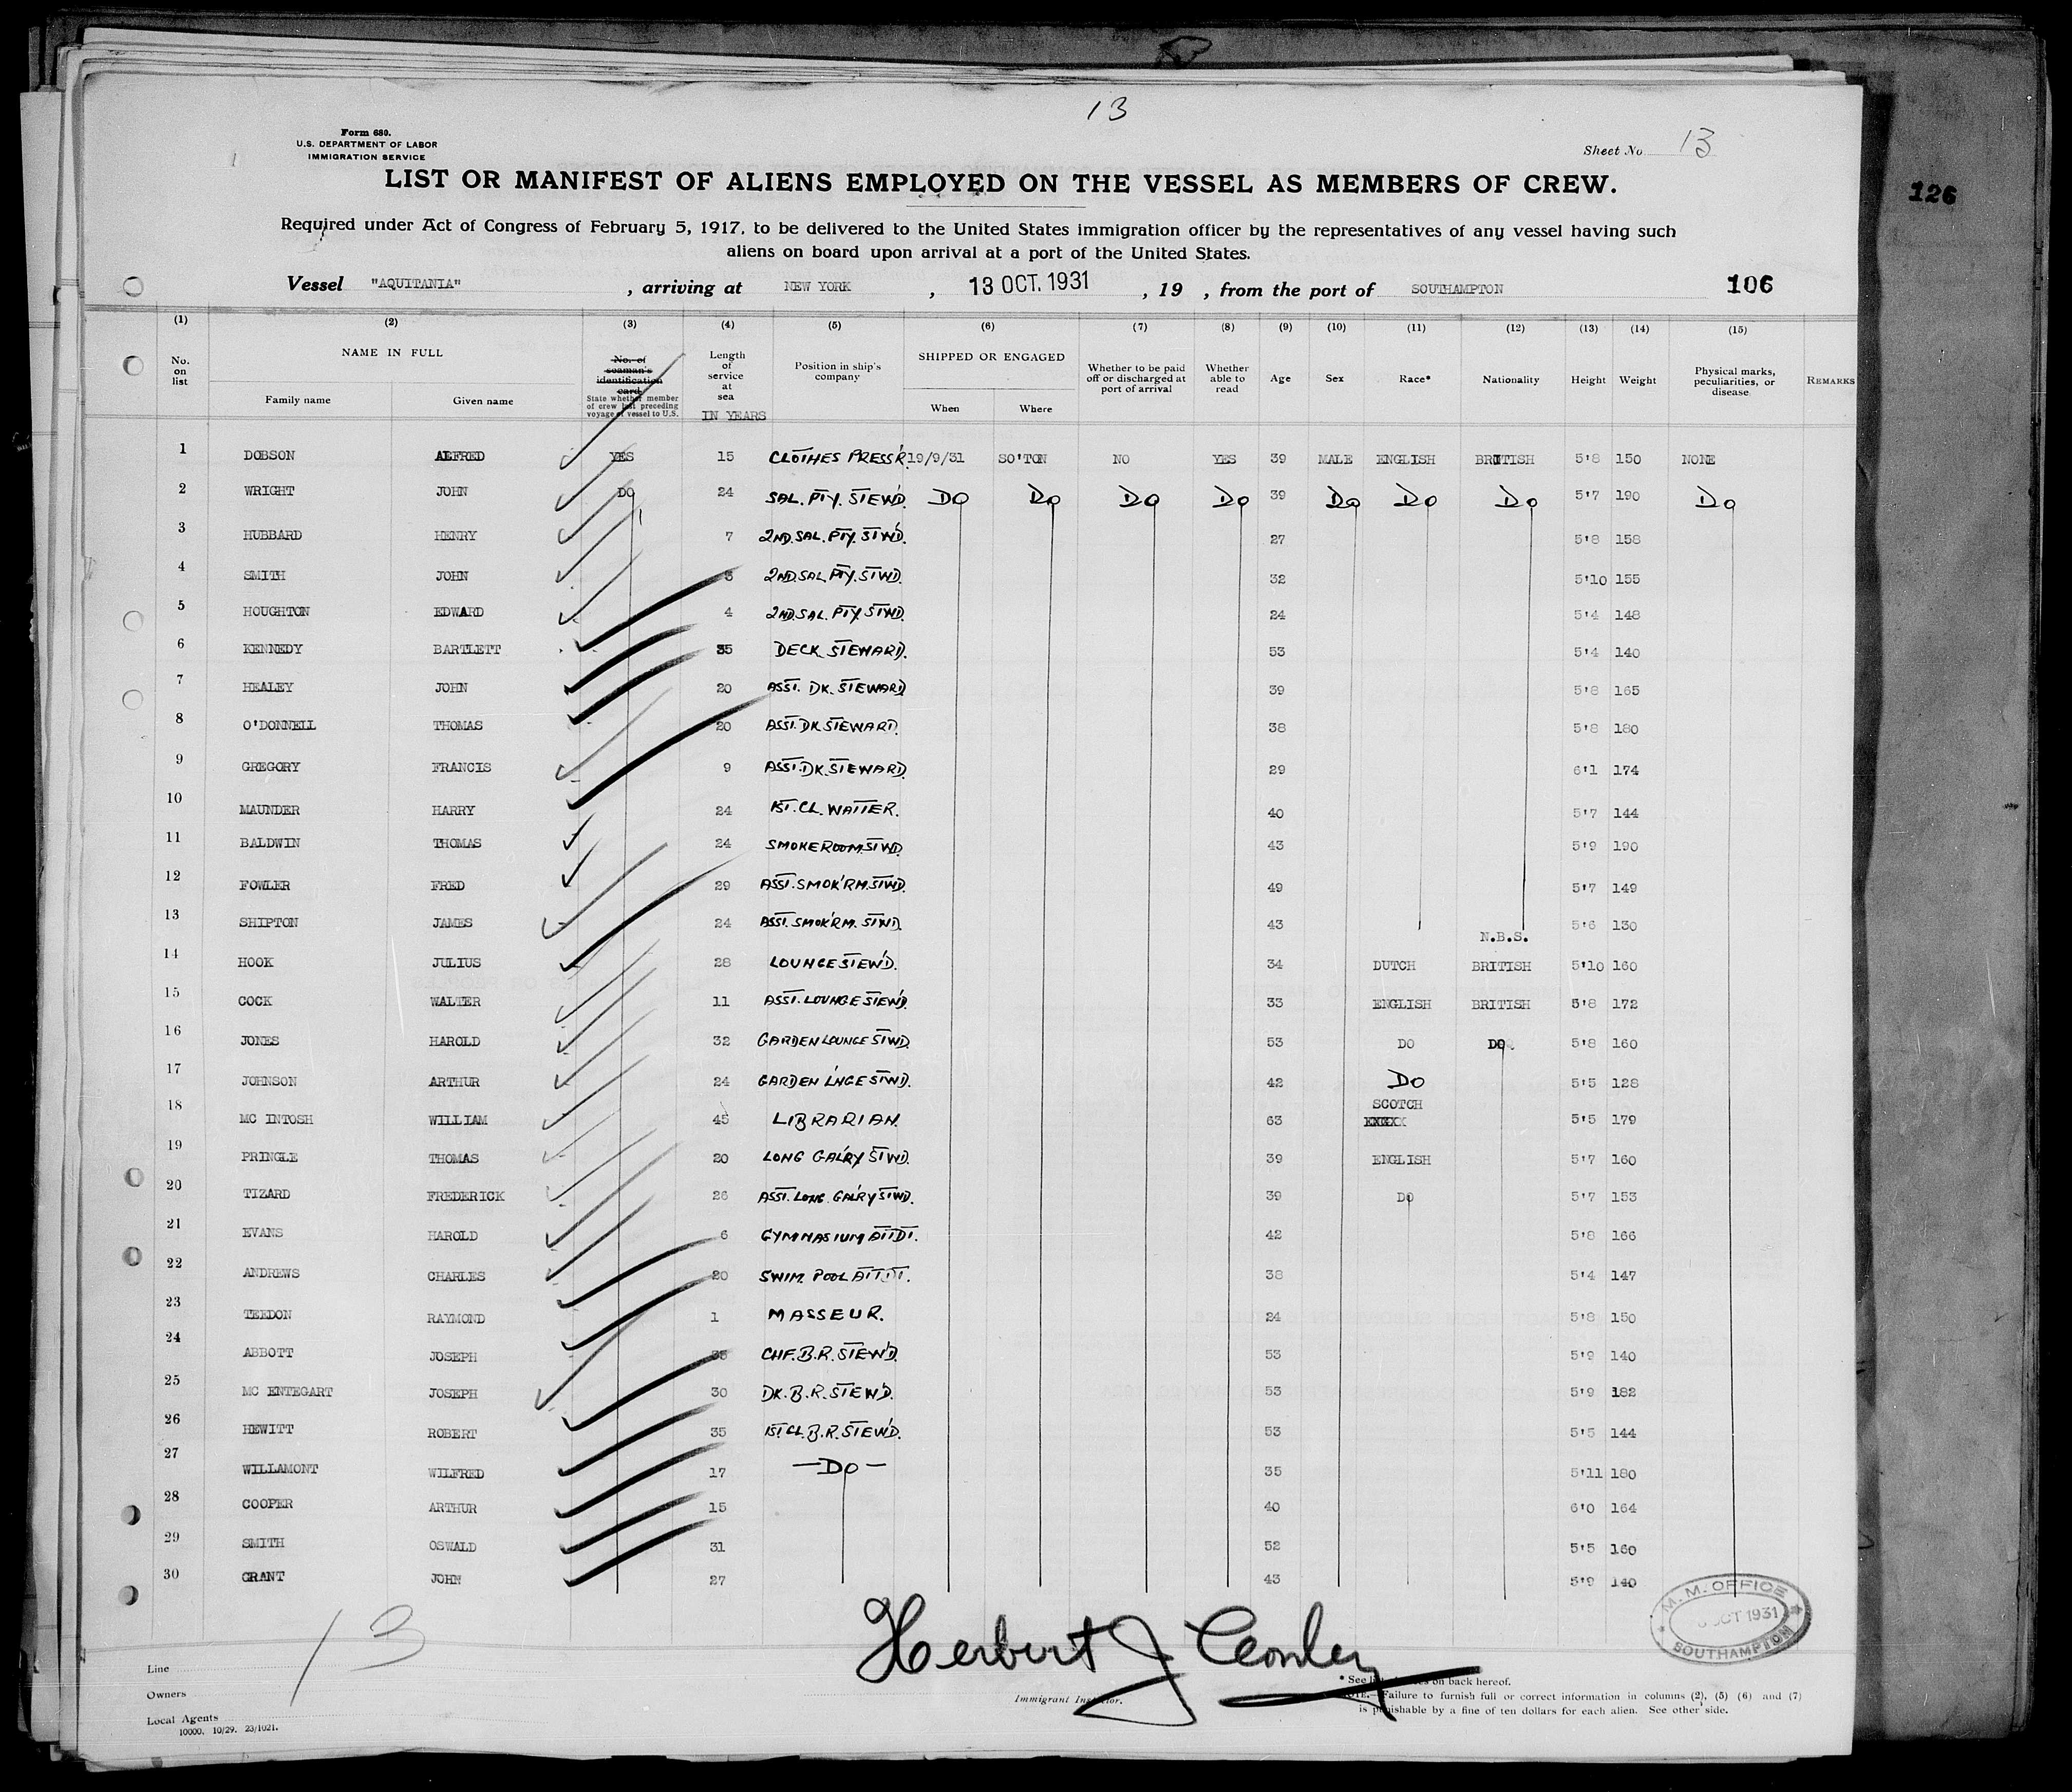 13
Form 680.
U.S. DEPARTMENT OF LABOR
IMMIGRATION SERVICE
Sheet No 13
LIST OR MANIFEST OF ALIENS EMPLOYED ON THE VESSEL AS MEMBERS OF CREW.
126
Required under Act of Congress of February 5, 1917, to be delivered to the United States immigration officer by the representatives of any vessel having such
aliens on board upon arrival at a port of the United States.
Vessel "AQUITANIA", arriving at NEW YORK, 13 OCT. 1931, 19 , from the port of SOUTHAMPTON 106
(1) (2) (3) (4) (5) (6) (7) (8) (9) (10) (11) (12) (13) (14) (15)
No. on list
NAME IN FULL
Family name Given name
No. of seaman's identification card
State whether member of crew last preceding voyage of vessel to U.S.
Length of service at sea
IN YEARS
Position in ship's company
SHIPPED OR ENGAGED
When Where
Whether to be paid off or discharged at port of arrival
Whether able to read
Age Sex Race* Nationality Height Weight
Physical marks, peculiarities, or disease
REMARKS
1 DOBSON ALFRED YES 15 CLOTHES PRESS'R 19/9/31 SO'TON NO YES 39 MALE ENGLISH BRITISH 5'8 150 NONE
2 WRIGHT JOHN DO 24 SAL. PTY. STEW'D. DO DO DO DO 39 DO DO DO 5'7 190 DO
3 HUBBARD HENRY 7 2ND. SAL. PTY. STW'D. 27 5'8 158
4 SMITH JOHN 2ND. SAL. PTY. STWD. 32 5'10 155
5 HOUGHTON EDWARD 4 2ND. SAL. PTY. STWD. 24 5'4 148
6 KENNEDY BARTLETT 35 DECK STEWARD. 53 5'4 140
7 HEALEY JOHN 20 ASST. DK. STEWARD 39 5'8 165
8 O'DONNELL THOMAS 20 ASST. DK STEWARD. 38 5'8 180
9 GREGORY FRANCIS 9 ASST. DK. STEWARD. 29 6'1 174
10 MAUNDER HARRY 24 1ST. CL. WAITER. 40 5'7 144
11 BALDWIN THOMAS 24 SMOKEROOM. STWD. 43 5'9 190
12 FOWLER FRED 29 ASST. SMOK'RM. STWD. 49 5'7 149
13 SHIPTON JAMES 24 ASST. SMOK'RM. STWD. 43 5'6 130
N.B.S.
14 HOOK JULIUS 28 LOUNGE STEW'D. 34 DUTCH BRITISH 5'10 160
15 COCK WALTER 11 ASST. LOUNGE STEW'D. 33 ENGLISH BRITISH 5'8 172
16 JONES HAROLD 32 GARDEN LOUNGE STWD. 53 DO DO 5'8 160
17 JOHNSON ARTHUR 24 GARDEN L'NGE STWD. 42 DO 5'5 128
SCOTCH
18 MC INTOSH WILLIAM 45 LIBRARIAN. 63 5'5 179
19 PRINGLE THOMAS 20 LONG GAL'RY STWD. 39 ENGLISH 5'7 160
20 TIZARD FREDERICK 26 ASST. LONG. GAL'RY STWD. 39 DO 5'7 153
21 EVANS HAROLD 6 GYMNASIUM ATTDT. 42 5'8 166
22 ANDREWS CHARLES 20 SWIM. POOL ATTDT. 38 5'4 147
23 TEEDON RAYMOND 1 MASSEUR. 24 5'8 150
24 ABBOTT JOSEPH CHF. B.R. STEW'D. 53 5'9 140
25 MC ENTEGART JOSEPH 30 DK. B.R. STEW'D. 53 5'9 182
26 HEWITT ROBERT 35 1ST CL. B.R. STEW'D. 53 5'5 144
27 WILLAMONT WILFRED 17 —DO— 35 5'11 180
28 COOPER ARTHUR 15 40 6'0 164
29 SMITH OSWALD 31 52 5'5 160
30 GRANT JOHN 27 43 5'9 140
M.M. OFFICE
OCT 1931
SOUTHAMPTON
13
Herbert J
Line
Owners
Local Agents
10000. 10/29. 23/1021.
Immigrant Inspector.
* See on back hereof.
NOTE.—Failure to furnish full or correct information in columns (2), (5) (6) and (7)
is punishable by a fine of ten dollars for each alien. See other side.